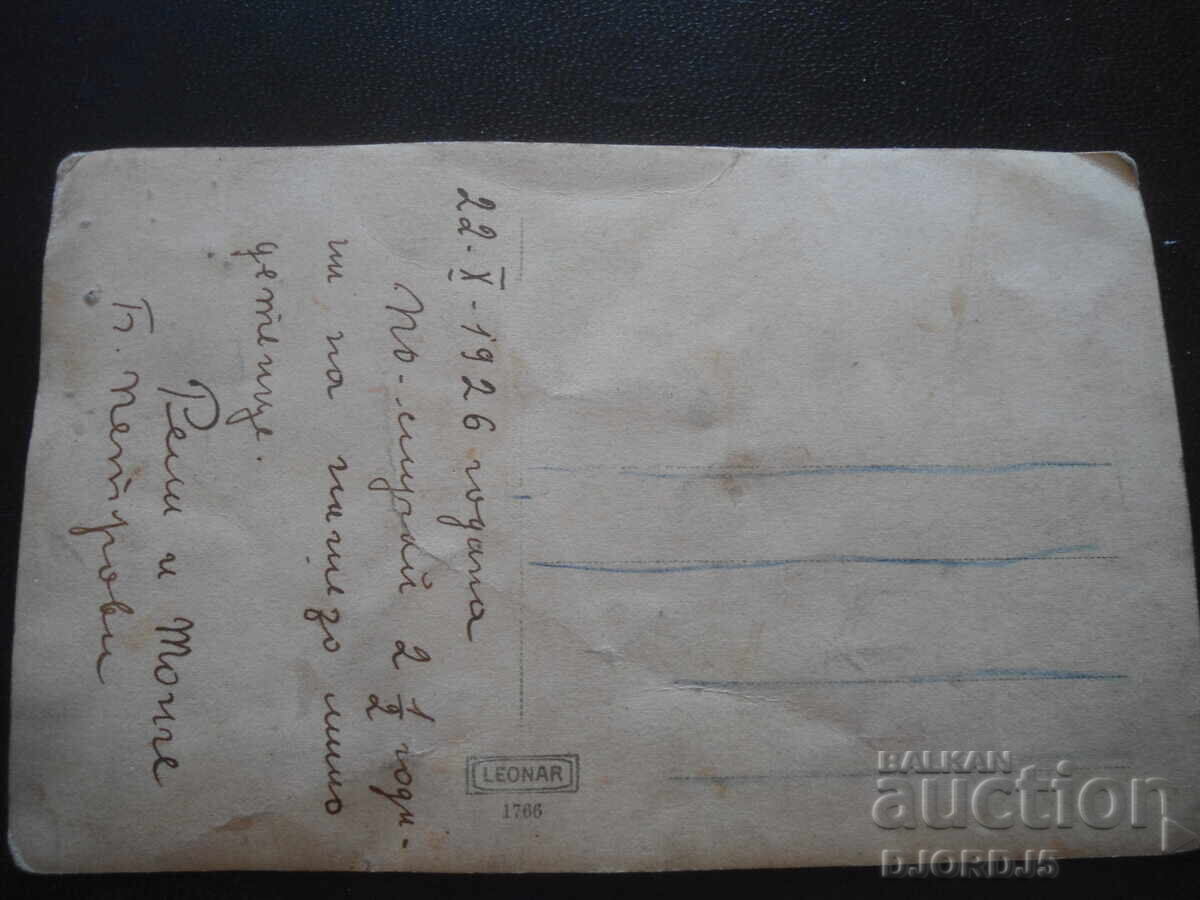 22-X-1926 година
По-случай 2 1/2 годи-
ни на нашето мило
детенце.
Рели и Тонче
П. Петрови
LEONAR
1766
BALKAN
auction
DJORDJ5